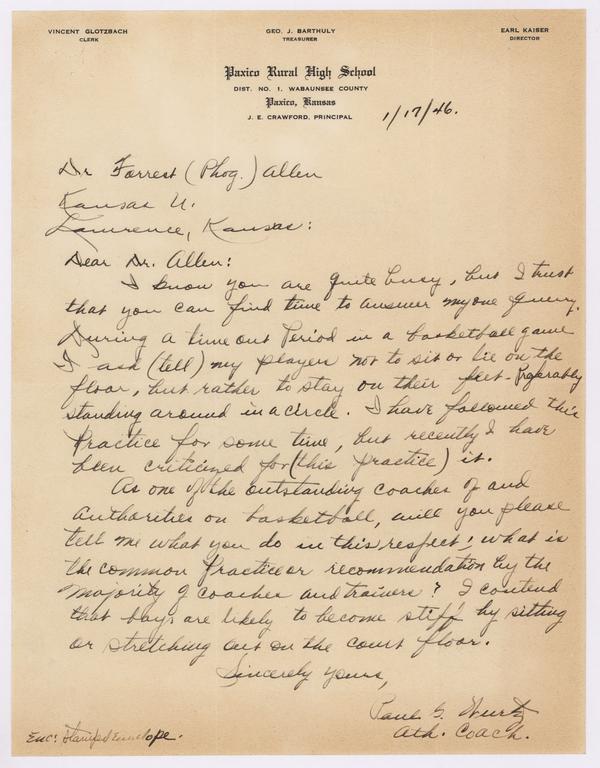 VINCENT GLOTZBACH
CLERK
GEO. J. BARTHULY
TREASURER
EARL KAISER
DIRECTOR
Paxico Rural High School
DIST. NO. 1, WABAUNSEE COUNTY
Paxico, Kansas
J. E. CRAWFORD, PRINCIPAL
1/17/46.
Dr Forrest (Phog.) Allen
Kansas U.
Lawrence, Kansas:
Dear Dr. Allen:
I know you are quite busy, but I trust
that you can find time to answer my one query.
During a time out period in a basketball game
I ask (tell) my players not to sit or lie on the
floor, but rather to stay on their feet - Prferably
standing around in a circle. I have followed this
Practice for some time, but recently I have
been criticized for (this practice) it.
As one of the outstanding coaches of and
authorities on basketball, will you please
tell me what you do in this respect; what is
the common Practice or recommendation by the
majority of coaches and trainers? I contend
that boys are likely to become stiff by sitting
or stretching out on the court floor.
Sincerely yours,
Paul G. Wurtz
Ath. Coach.
Enc: Stamped Envelope.